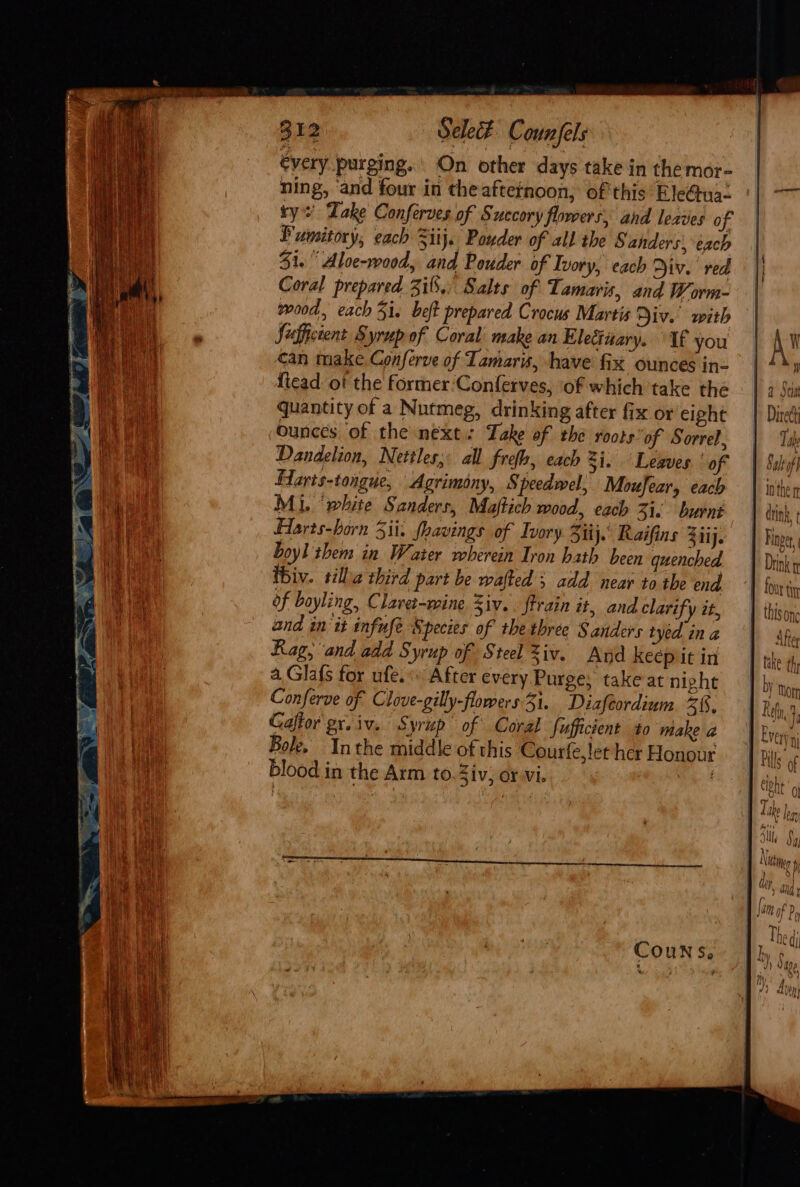 312 Select Counſels
every purging. On other days take in the mor-
ning, and four in the afternoon, of this Electua-
ry: Take Conſerves of Succory flowers, and leaves of
Fumitory, each ℥iij. Pouder of all the Sanders, each
ʒi. Aloe-wood, and Pouder of Ivory, each ℈iv. red
Coral prepared ʒiß. Salts of Tamaris, and Worm-
wood, each ʒi. beſt prepared Crocus Martis ℈iv. with
ſufficient Syrup of Coral make an Electuary. If you
can make Conſerve of Tamaris, have ſix ounces in-
ſtead of the former Conſerves, of which take the
quantity of a Nutmeg, drinking after ſix or eight
Ounces of the next: Take of the roots of Sorrel,
Dandelion, Nettles, all freſh, each ℥i. Leaves of
Harts-tongue, Agrimony, Speedwel, Mouſear, each
Mi. white Sanders, Maſtich wood, each ʒi. burnt
Harts-horn ʒii. ſhavings of Ivory ʒiij. Raiſins ℥iij.
boyl them in Water wherein Iron hath been quenched
℔iv. till a third part be waſted; add near to the end
of boyling, Claret-wine ℥iv. ſtrain it, and clarify it,
and in it infuſe Species of the three Sanders tyed in a
Rag, and add Syrup of Steel ℥iv. And keep it in
a Glaſs for uſe. After every Purge, take at night
Conſerve of Clove-gilly-flowers ʒi. Diaſcordium ʒß.
Caſtor gr. iv. Syrup of Coral ſufficient to make a
Bole. In the middle of this Courſe, let her Honour
blood in the Arm to ℥iv, or vi.
COUNS.